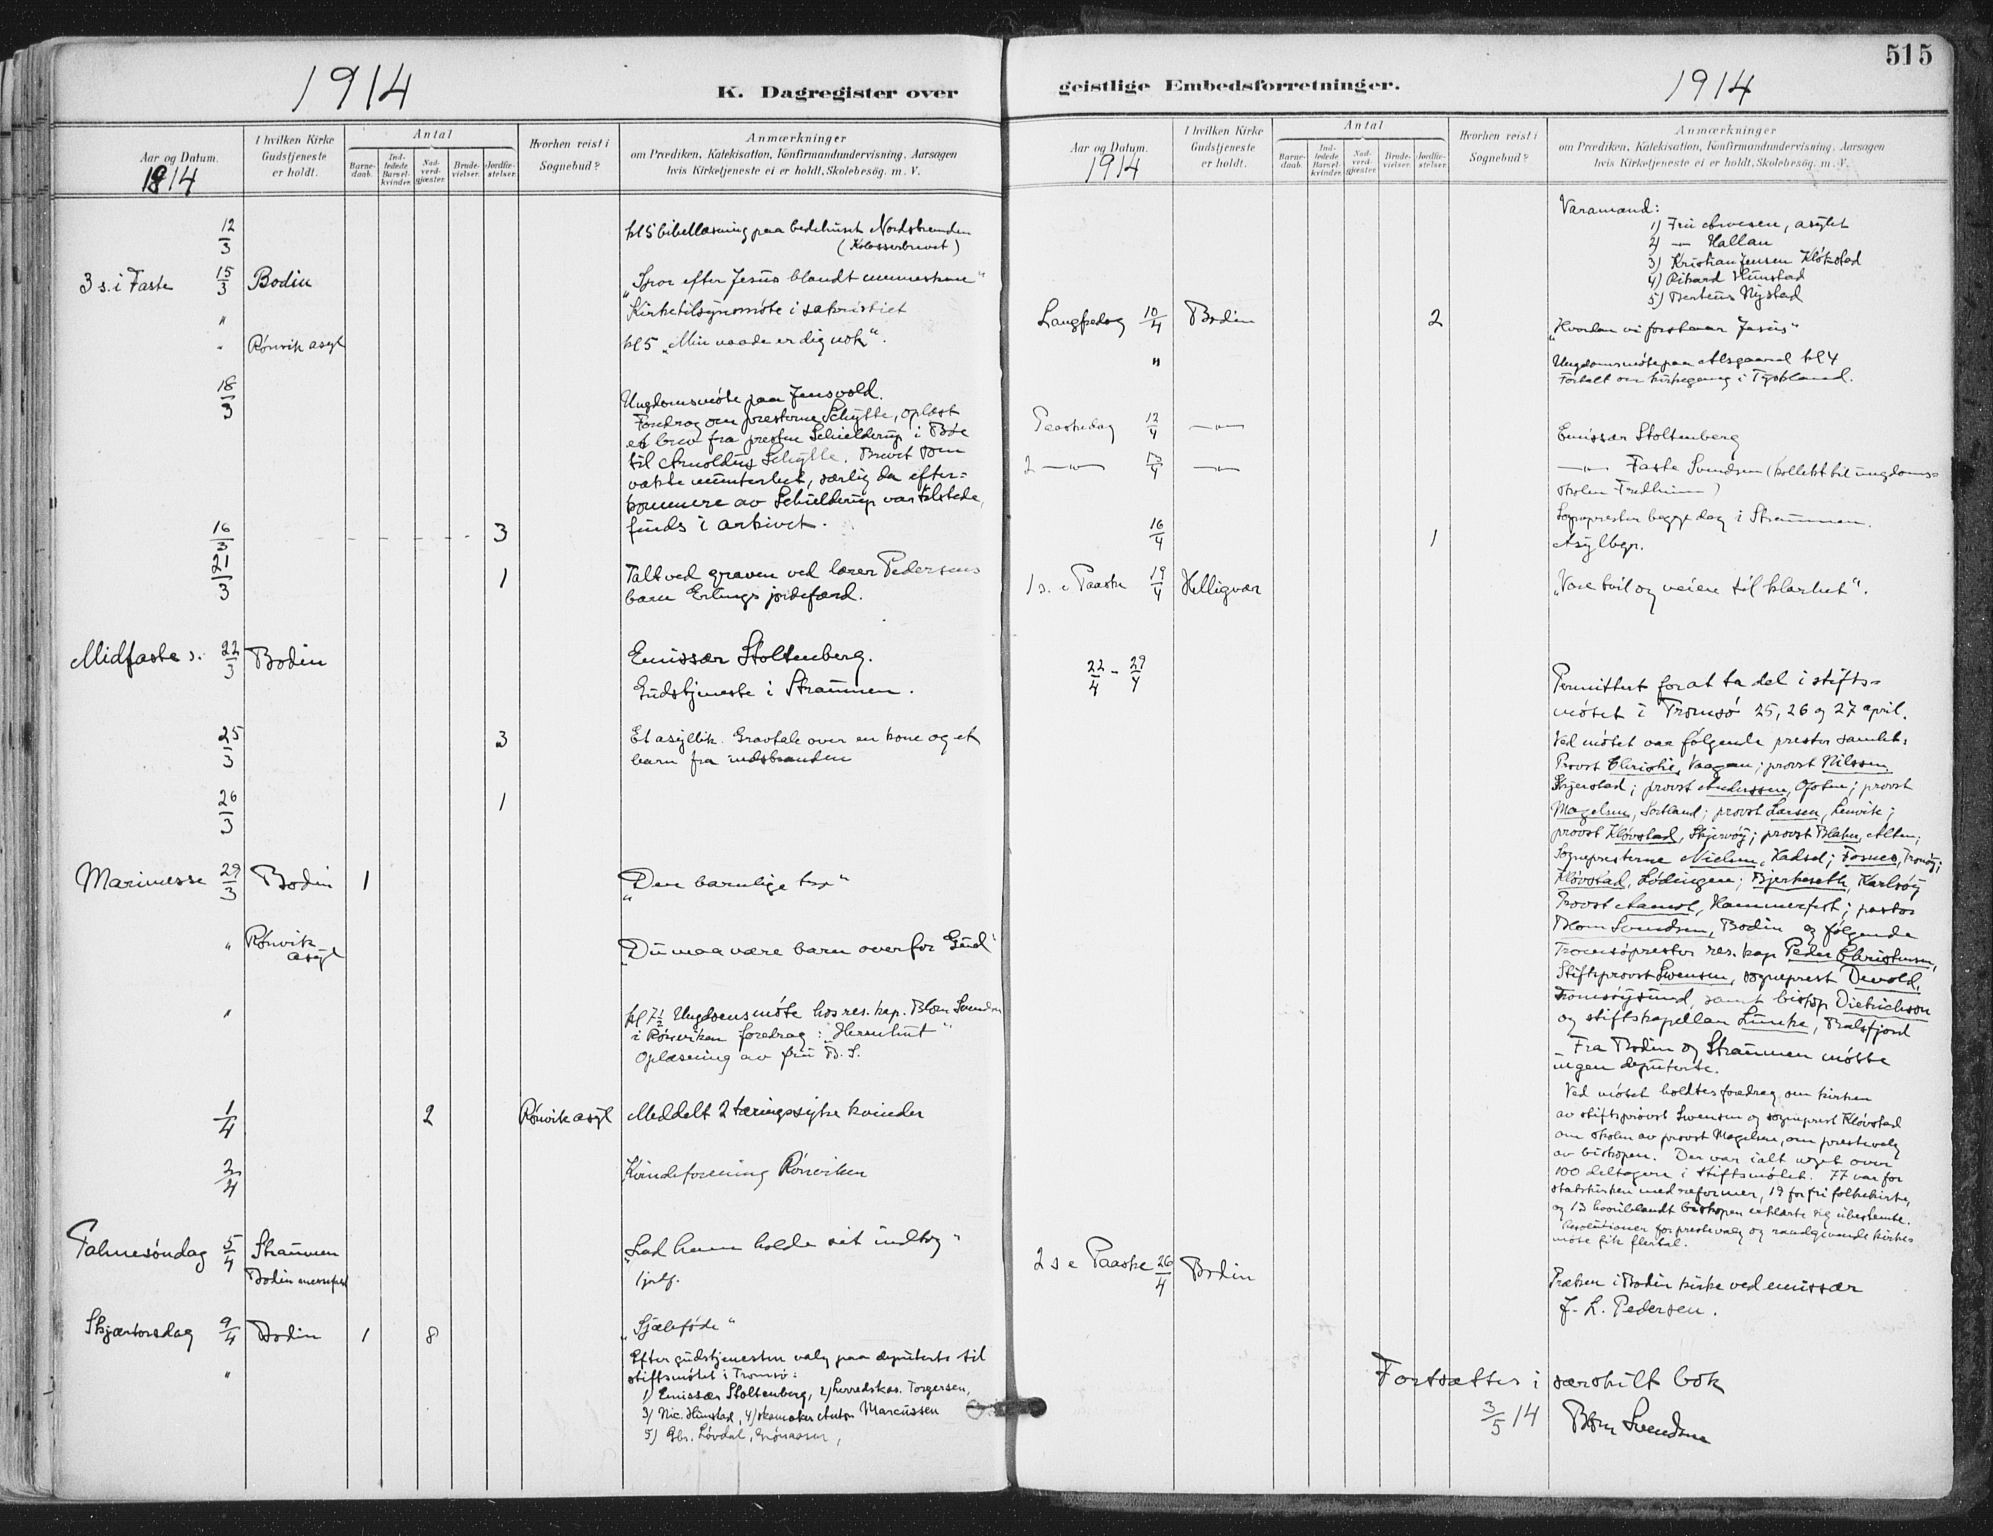 1914
K. Dagregister over
Aar og Datum.
1914
I hvilken Kirke
Gudstjeneste
er holdt.
Antal
Barne-
daab.
Ind-
ledede
Barsel-
kvinder.
Nad-
verd-
gjæster.
Brude-
vielser.
Jordfæ-
stelser.
Hvorhen reist i
Sognebud?
Anmærkninger
om Prædiken, Katekisation, Konfirmandundervisning, Aarsagen
hvis Kirketjeneste ei er holdt, Skolebesög. m. V.
12/3 kl 5 bibellæsning paa bedehuset Nordstranden
(Kolosserbrevet)
3 s. i Faste 15/3 Bodin „Spor efter Jesus blandt menneskene“
" Kirketilsynsmöte i sakristiet
" Rönvik asyl kl 5 „Min naade er dig nok“.
18/3 Ungdomsmöte paa Jensvold.
Foredrag om presterne Schytte, oplæst
et brev fra presten Schielderup i Böe
til Arnoldus Schytte. Brevet som
vakte munterhet, særlig da efter=
kommere av Schielderup var tilstede,
finds i arkivet.
16/3 3
21/3 1 Talt ved graven ved lærer Pedersens
barn Erlings jordefærd.
Midfaste s. 22/3 Bodin Emissær Stoltenberg.
Gudstjeneste i Straumen.
25/3 3 Et asyllik. Gravtale over en kone og et
barn fra
26/3 1
Marimesse 29/3 Bodin 1 „Den barnlige tro“
" Rönvik
asyl „Du maa være barn overfor Gud“
" kl 7½ Ungdomsmöte hos res. kap. Blom Svendsen
i Rönviken foredrag: „Hernhut“
Oplæsning av fru B. S.
1/4 2 Rönvik asyl Meddelt 2 tæringssyke kvinder
2/4 Kvindeforening Rönviken
Palmesöndag 5/4 Straumen „Lad ham holde sit indtog“
Bodin messefald 1 jordf.
Skjærtorsdag 9/4 Bodin 1 8 „Sjæleföde“
" Efter gudstjenesten valg paa deputerte til
stiftsmötet i Tromsö:
1) Emissær Stoltenberg, 2) Herredskas. Torgersen,
3) Nic. Hunstad, 4) skomaker Anton Marcussen
5) Lövdal,
515
geistlige Embedsforretninger.
1914
Aar og Datum.
1914
I hvilken Kirke
Gudstjeneste
er holdt.
Antal
Barne-
daab.
Ind-
ledede
Barsel-
kvinder.
Nad-
verd-
gjæster.
Brude-
vielser.
Jordfæ-
stelser.
Hvorhen reist i
Sognebud?
Anmærkninger
om Prædiken, Katekisation, Konfirmandundervisning, Aarsagen
hvis Kirketjeneste ei er holdt, Skolebesög. m. V.
Varamænd:
1) Fru Arnesen, asylet
2) — Hallan
3) Kristian Jensen Klökstad
4) Rikard Hunstad
5) Berteus Nystad
Langfredag 10/4 Bodin 2 „Hvordan vi forstaar Jesus“
" Ungdomsmöte paa Alsgaard kl 4
Fortalt om kirkegang i Tyskland.
Paaskedag 12/4 —"— Emissær Stoltenberg
2 —"— 13/4 —"— —"— Faste Svendsen (kollekt til ungdoms=
skolen Fredheim)
Sogneprest begge dag i Straumen.
16/4 1 Asylbgr.
1 s. e Paaske 19/4 Helligvær „Vore tvil og veien til klarhet“.
22/4 - 29/4 Permittert for at ta del i stifts=
mötet i Tromsö 25, 26 og 27 april.
Ved mötet var fölgende prester samlet:
Provst Christie, Vaagan; provst Nilssen,
Skjerstad; provst Anderssen, Ofoten; provst
Magelsen, Sortland; provst Larsen, Lenvik;
provst Klövstad, Skjervöy; provst Blakar, Alten;
Sognepresterne Nielsen, Hadsel; Fosnes, Tromöy;
Klövstad, Lödingen; Bjerkeseth, Karlsöy
Provst Aamot, Hammerfest; pastor
Blom Svendsen, Bodin og fölgende
Tromsöprester res. kap. Peder Christensen,
Stiftsprovst Svensen, sogneprest Devold,
Tromsöysund, samt biskop Dietrichson
og stiftskapellan Lunke, Balsfjord
Fra Bodin og Straumen mötte
ingen deputerte.
Ved mötet holdtes foredrag om kirken
av stiftsprovst Svensen og sogneprest Klövstad
om skolen av provst Magelsen, om prestevalg
av biskopen. Der var ialt noget over
100 deltagere i stiftsmötet. 77 var for
statskirken med reformer, 19 for fri folkekirke,
og 13 hvoriblandt biskopen erklærte sig ubestemte.
Resolutioner for prestevalg og raadgivende kirke=
möte fik flertal.
2 s e Paaske 26/4 Bodin Præken i Bodin kirke ved emissær
J. L. Pedersen.
Fortsættes i særskilt bok
3/5 14 Blom Svendsen